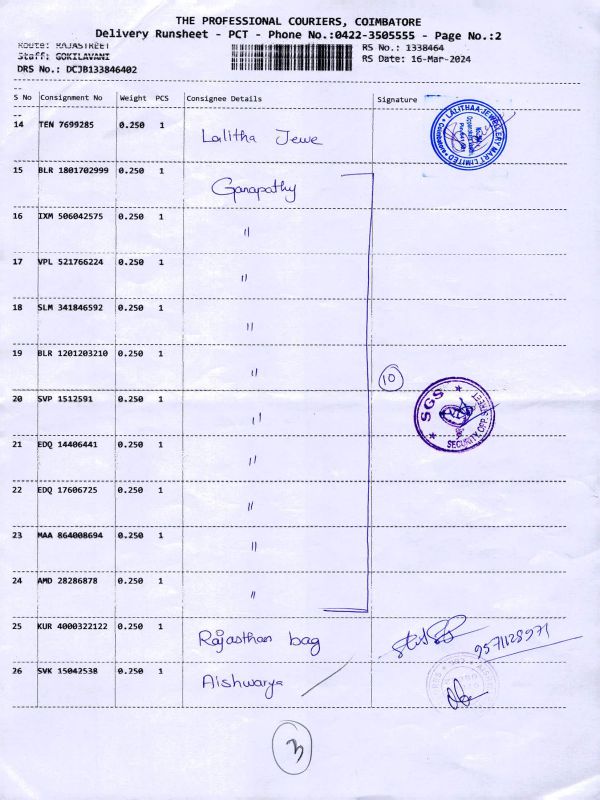 THE PROFESSIONAL COURIERS, COIMBATORE
Delivery Runsheet - PCT - Phone No.:0422-3505555 - Page No.:2
Route: RAJASTREET
RS No.: 1338464
Staff: GOKILAVANI
RS Date: 16-Mar-2024
DRS No.: DCJB133846402
S No Consignment No Weight PCS Consignee Details Signature
14 TEN 7699285 0.250 1 Lalitha Jewe
LALITHAA JEWELLERY MART LIMITED
15 BLR 1801702999 0.250 1 Ganapathy
16 IXM 506042575 0.250 1 "
17 VPL 521766224 0.250 1 "
18 SLM 341846592 0.250 1 "
19 BLR 1201203210 0.250 1 "
10
20 SVP 1512591 0.250 1 "
SGS
SECURITY OPP. STREET
21 EDQ 14406441 0.250 1 "
22 EDQ 17606725 0.250 1 "
23 MAA 864008694 0.250 1 "
24 AMD 28286878 0.250 1 "
25 KUR 4000322122 0.250 1 Rajasthan bag 9571128971
26 SVK 15042538 0.250 1 Aishwarya
3